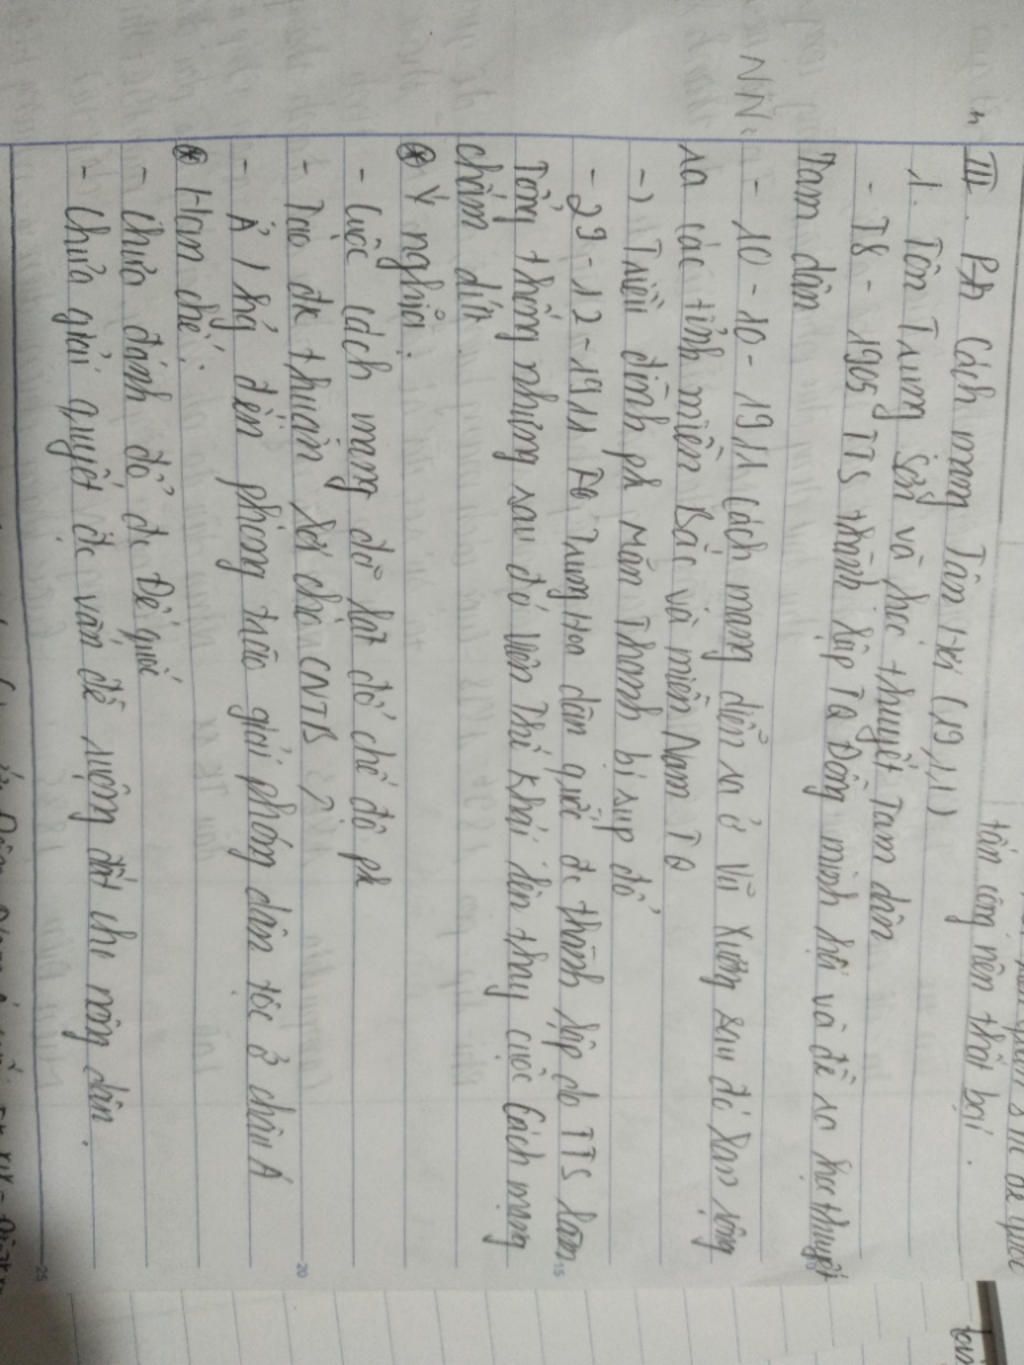 tấn công nên thất bại.
III. Ptr Cách mạng Tân Hợi (1911)
1. Tôn Trung Sơn và học thuyết Tam dân
- T8 - 1905 TTS thành lập TQ Đồng minh hội và đề ra học thuyết
Tam dân
- 10 - 10 - 1911 Cách mạng diễn ra ở Vũ Xương sau đó lan rộng
ra các tỉnh miền Bắc và miền Nam TQ
-> Triều đình pk Mãn Thanh bị sụp đổ
- 29 - 12 - 1911 Trung Hoa dân quốc đc thành lập do TTS làm
Tổng thống nhưng sau đó Viên Thế Khải lên thay cuộc Cách mạng
chấm dứt.
* Ý nghĩa.
- Cuộc cách mạng đã lật đổ chế độ pk
- Tạo đk thuận lợi cho CNTB
- Ả/hg đến phong trào giải phóng dân tộc ở châu Á
* Hạn chế:
- Chưa đánh đổ đc Đế quốc
- Chưa giải quyết đc vấn đề ruộng đất cho nông dân.
NN:
15
20
25